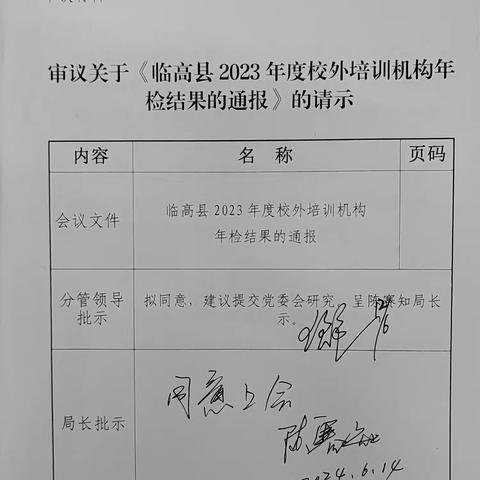 审议关于《临高县 2023 年度校外培训机构年
检结果的通报》的请示
内容 名 称 页码
会议文件
临高县 2023 年度校外培训机构
年检结果的通报
分管领导
批示
拟同意，建议提交党委会研究，呈陈赛知局长
示。
局长批示
同意上会
陈赛知
2024.6.14